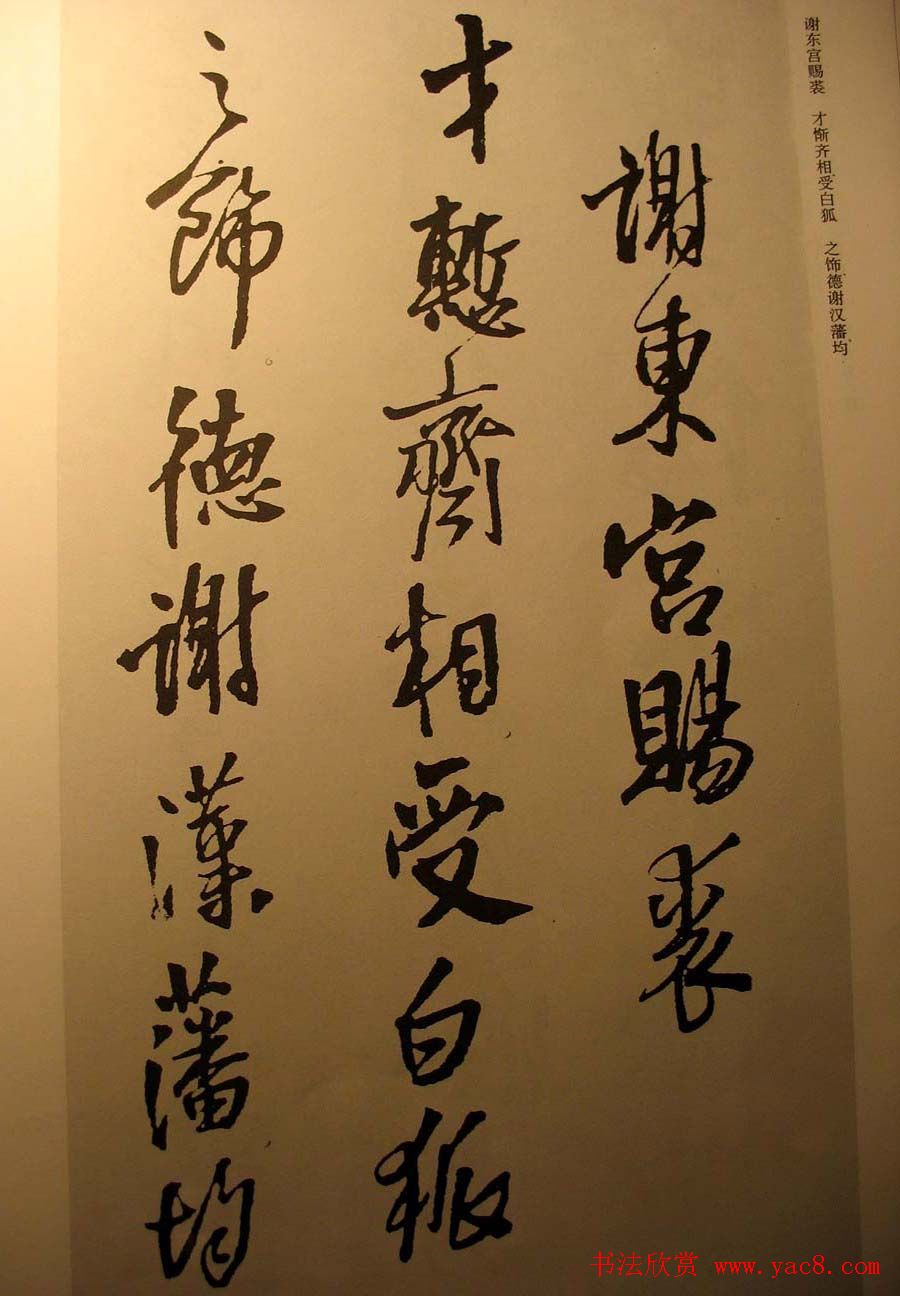 谢东宫赐裘　才惭齐相受白狐　之饰德谢汉藩均
謝東宮賜裘
才慙齊相受白狐
之飾德謝漢藩均
书法欣赏 www.yac8.com